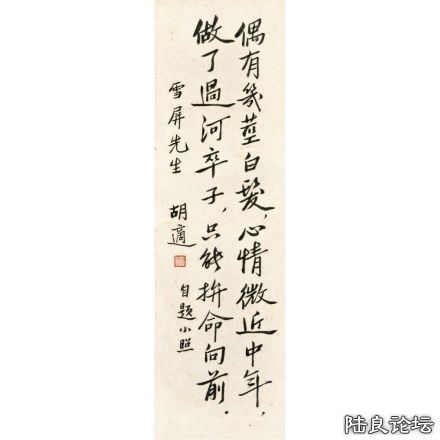 偶有幾莖白髮，心情微近中年，
做了過河卒子，只能拚命向前．
雪屏先生 胡適
自題小照
陆良论坛